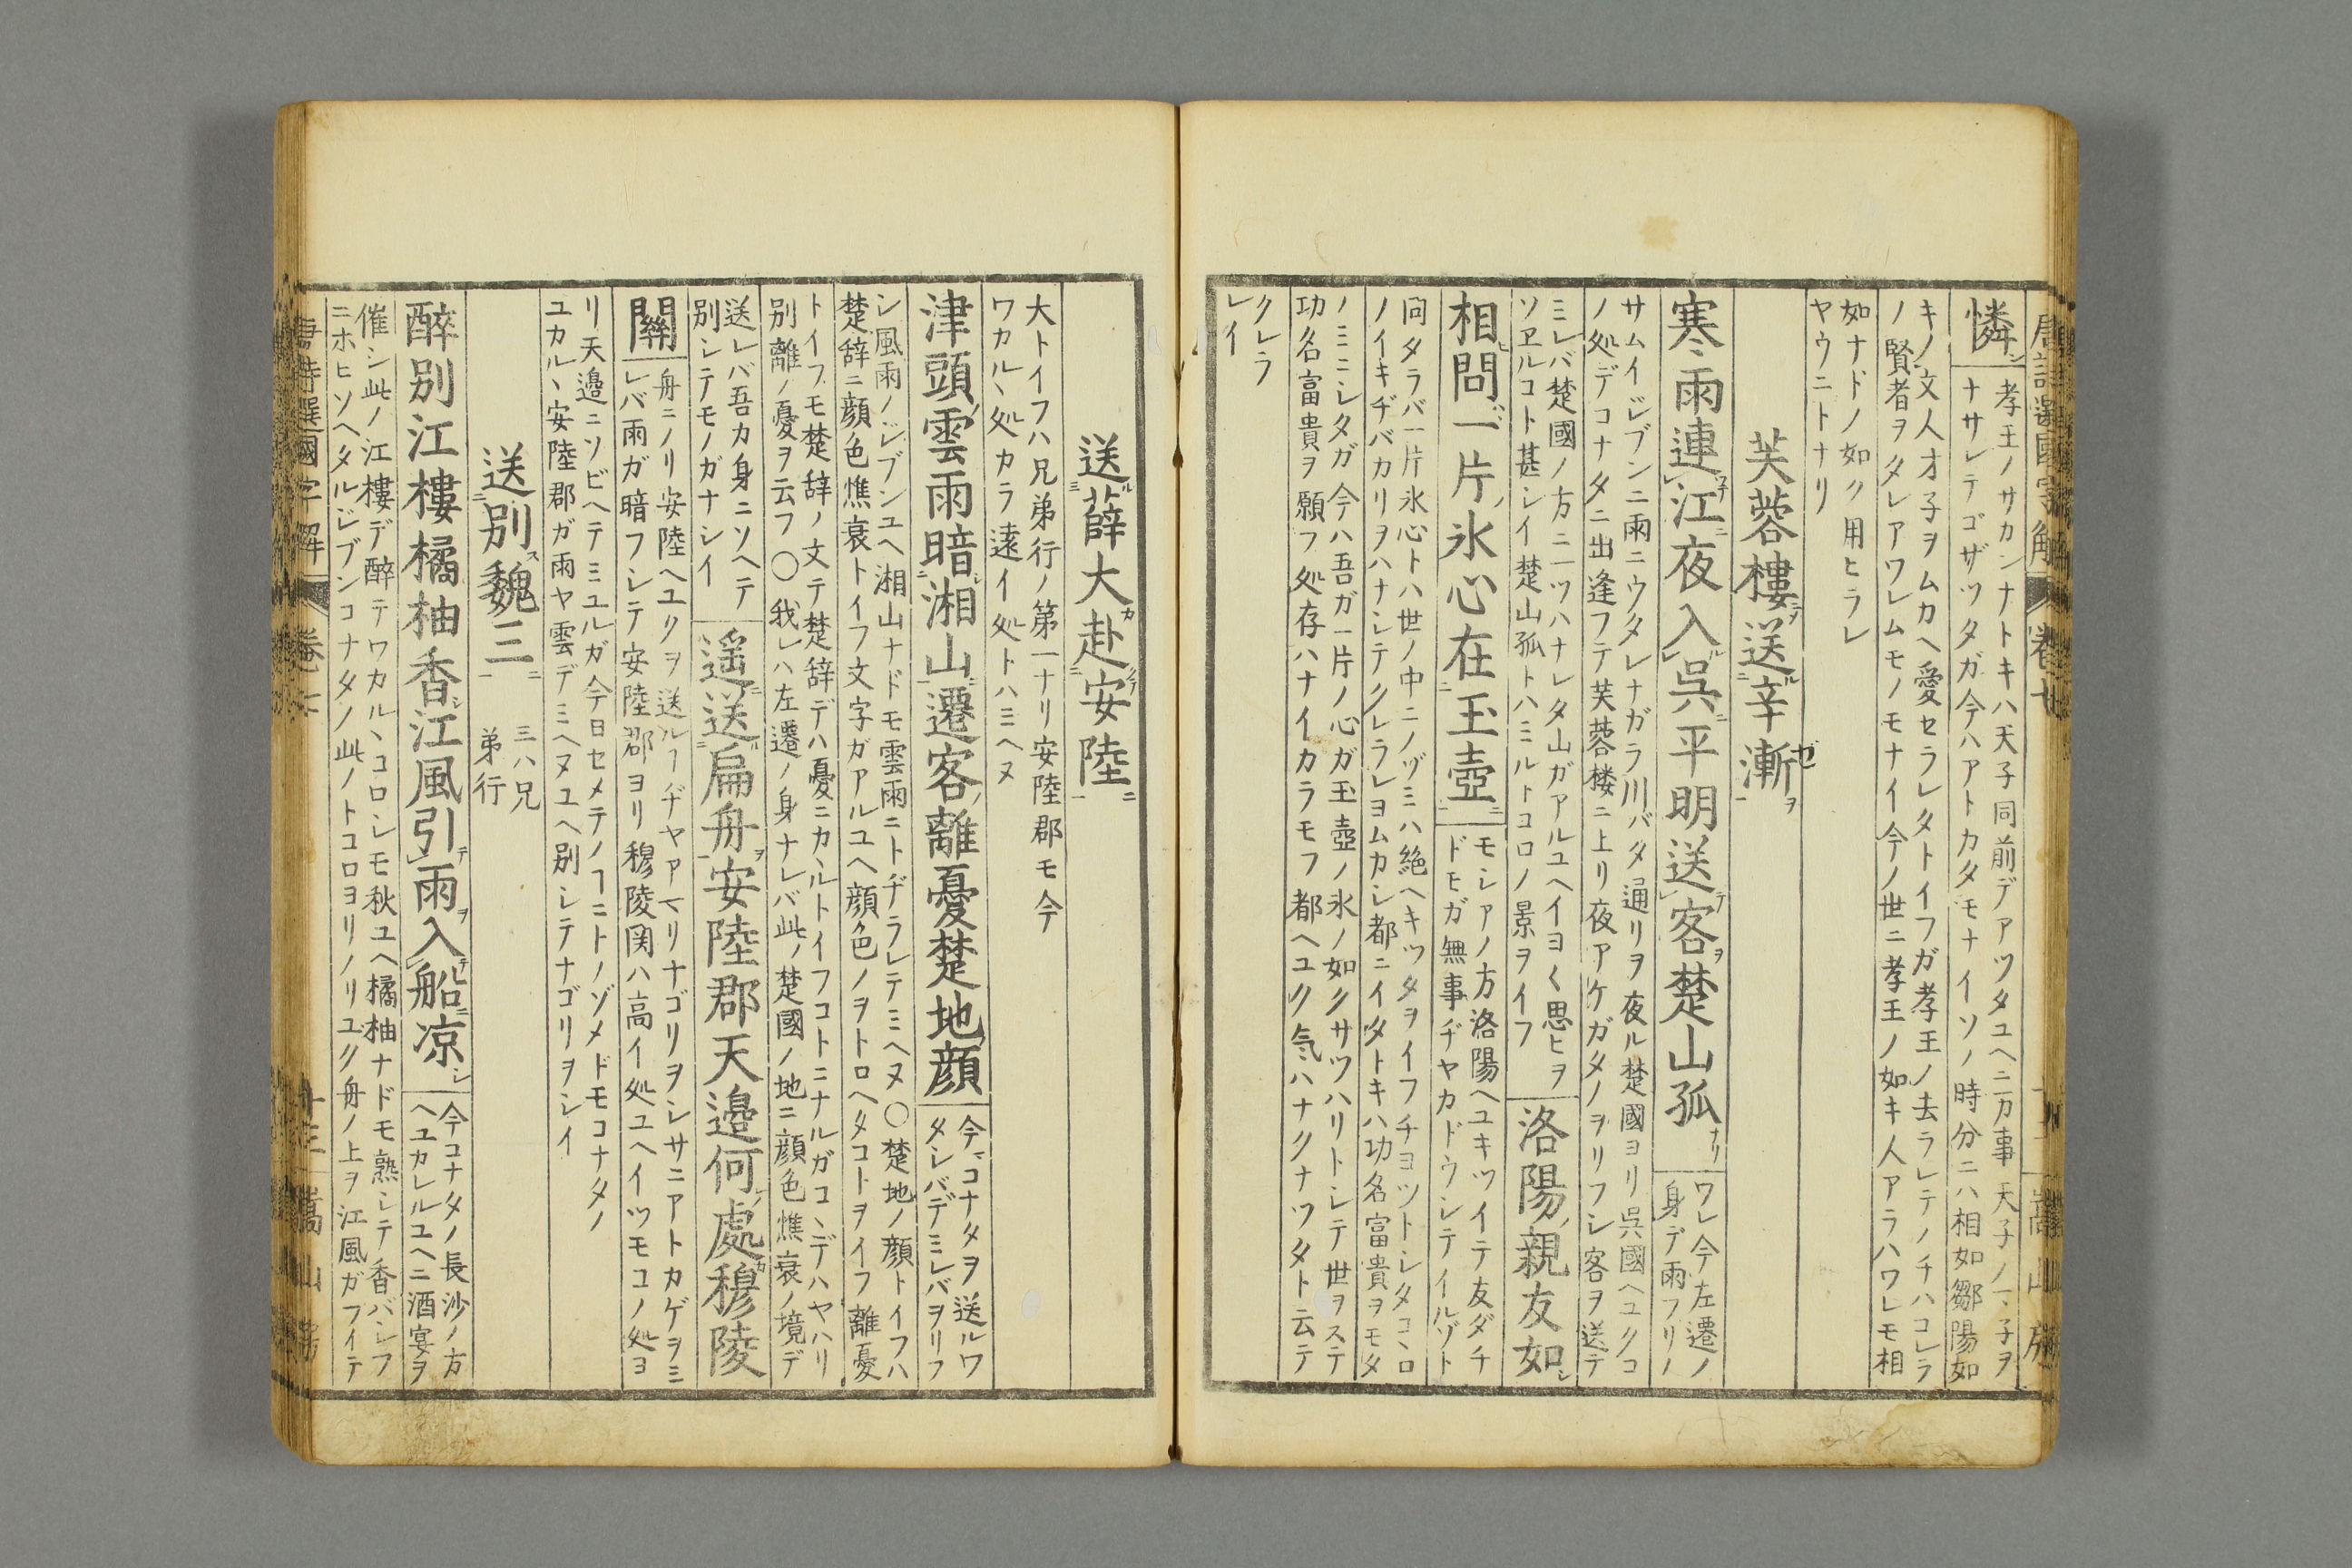 唐詩選國字解 卷七 嵩山房
憐 孝王ノサカンナトキハ天子同前デアツタユヘニ万事天子ノマ子ヲ
ナサレテゴザツタガ今ハアトカタモナイソノ時分ニハ相如鄒陽如
キノ文人才子ヲムカヘ愛セラレタトイフガ孝王ノ去ラレテノチハコレラ
ノ賢者ヲタレアワレムモノモナイ今ノ世ニ孝王ノ如キ人アラハワレモ相
如ナドノ如ク用ヒラレ
ヤウニトナリ
芙蓉樓送辛漸
寒雨連江夜入呉平明送客楚山孤
ワレ今左遷ノ
身デ雨フリノ
サムイジブンニ雨ニウタレナガラ川バタ通リヲ夜ル楚國ヨリ呉國ヘユクコ
ノ処デコナタニ出逢フテ芙蓉楼ニ上リ夜アケガタノヲリフシ客ヲ送テ
ミレバ楚國ノ方ニ一ツハナレタ山ガアルユヘイヨ〱思ヒヲ
ソヱルコト甚シイ楚山孤トハミルトコロノ景ヲイフ
洛陽親友如
相問一片氷心在玉壺
モシアノ方洛陽ヘユキツイテ友ダチ
ドモガ無事ヂヤカドウシテイルゾト
問タラバ一片氷心トハ世ノ中ニノゾミハ絶ヘキツタヲイフチヨツトシタコヽロ
ノイキヂバカリヲハナシテクレラレヨムカシ都ニイタトキハ功名富貴ヲモタ
ノミニシタガ今ハ吾ガ一片ノ心ガ玉壺ノ氷ノ如クサツハリトシテ世ヲステ
功名富貴ヲ願フ処存ハナイカラモフ都ヘユク気ハナクナツタト云テ
クレラ
レイ
送薛大赴安陸
大トイフハ兄弟行ノ第一ナリ安陸郡モ今
ワカルヽ処カラ遠イ処トハミヘヌ
津頭雲雨暗湘山遷客離憂楚地顔
今コナタヲ送ルワ
タシバデミレバヲリフ
シ風雨ノジブンユヘ湘山ナドモ雲雨ニトヂラレテミヘヌ〇楚地ノ顔トイフハ
楚辞ニ顔色憔衰トイフ文字ガアルユヘ顔色ノヲトロヘタコトヲイフ離憂
トイフモ楚辞ノ文テ楚辞デハ憂ニカヽルトイフコトニナルガコヽデハヤハリ
別離ノ憂ヲ云フ〇我レハ左遷ノ身ナレバ此ノ楚國ノ地ニ顔色憔衰ノ境デ
送レバ吾カ身ニソヘテ
別シテモノガナシイ
遥送扁舟安陸郡天邉何處穆陵
關
舟ニノリ安陸ヘユクヲ送ルヿヂヤアマリナゴリヲシサニアトカゲヲミ
レバ雨ガ暗フシテ安陸郡ヨリ穆陵関ハ高イ処ユヘイツモコノ処ヨ
リ天邉ニソビヘテミユルガ今日セメテノヿニトノゾメドモコナタノ
ユカルヽ安陸郡ガ雨ヤ雲デミヘヌユヘ別シテナゴリヲシイ
送別魏三
三ハ兄
弟行
醉別江樓橘柚香江風引雨入船凉
今コナタノ長沙ノ方
ヘユカレルユヘニ酒宴ヲ
催シ此ノ江樓デ醉テワカルヽコロシモ秋ユヘ橘柚ナドモ熟シテ香バシフ
ニホヒソヘタルジブンコナタノ此ノトコロヨリノリユク舟ノ上ヲ江風ガフイテ
唐詩選國字解 卷七 十三 嵩山房